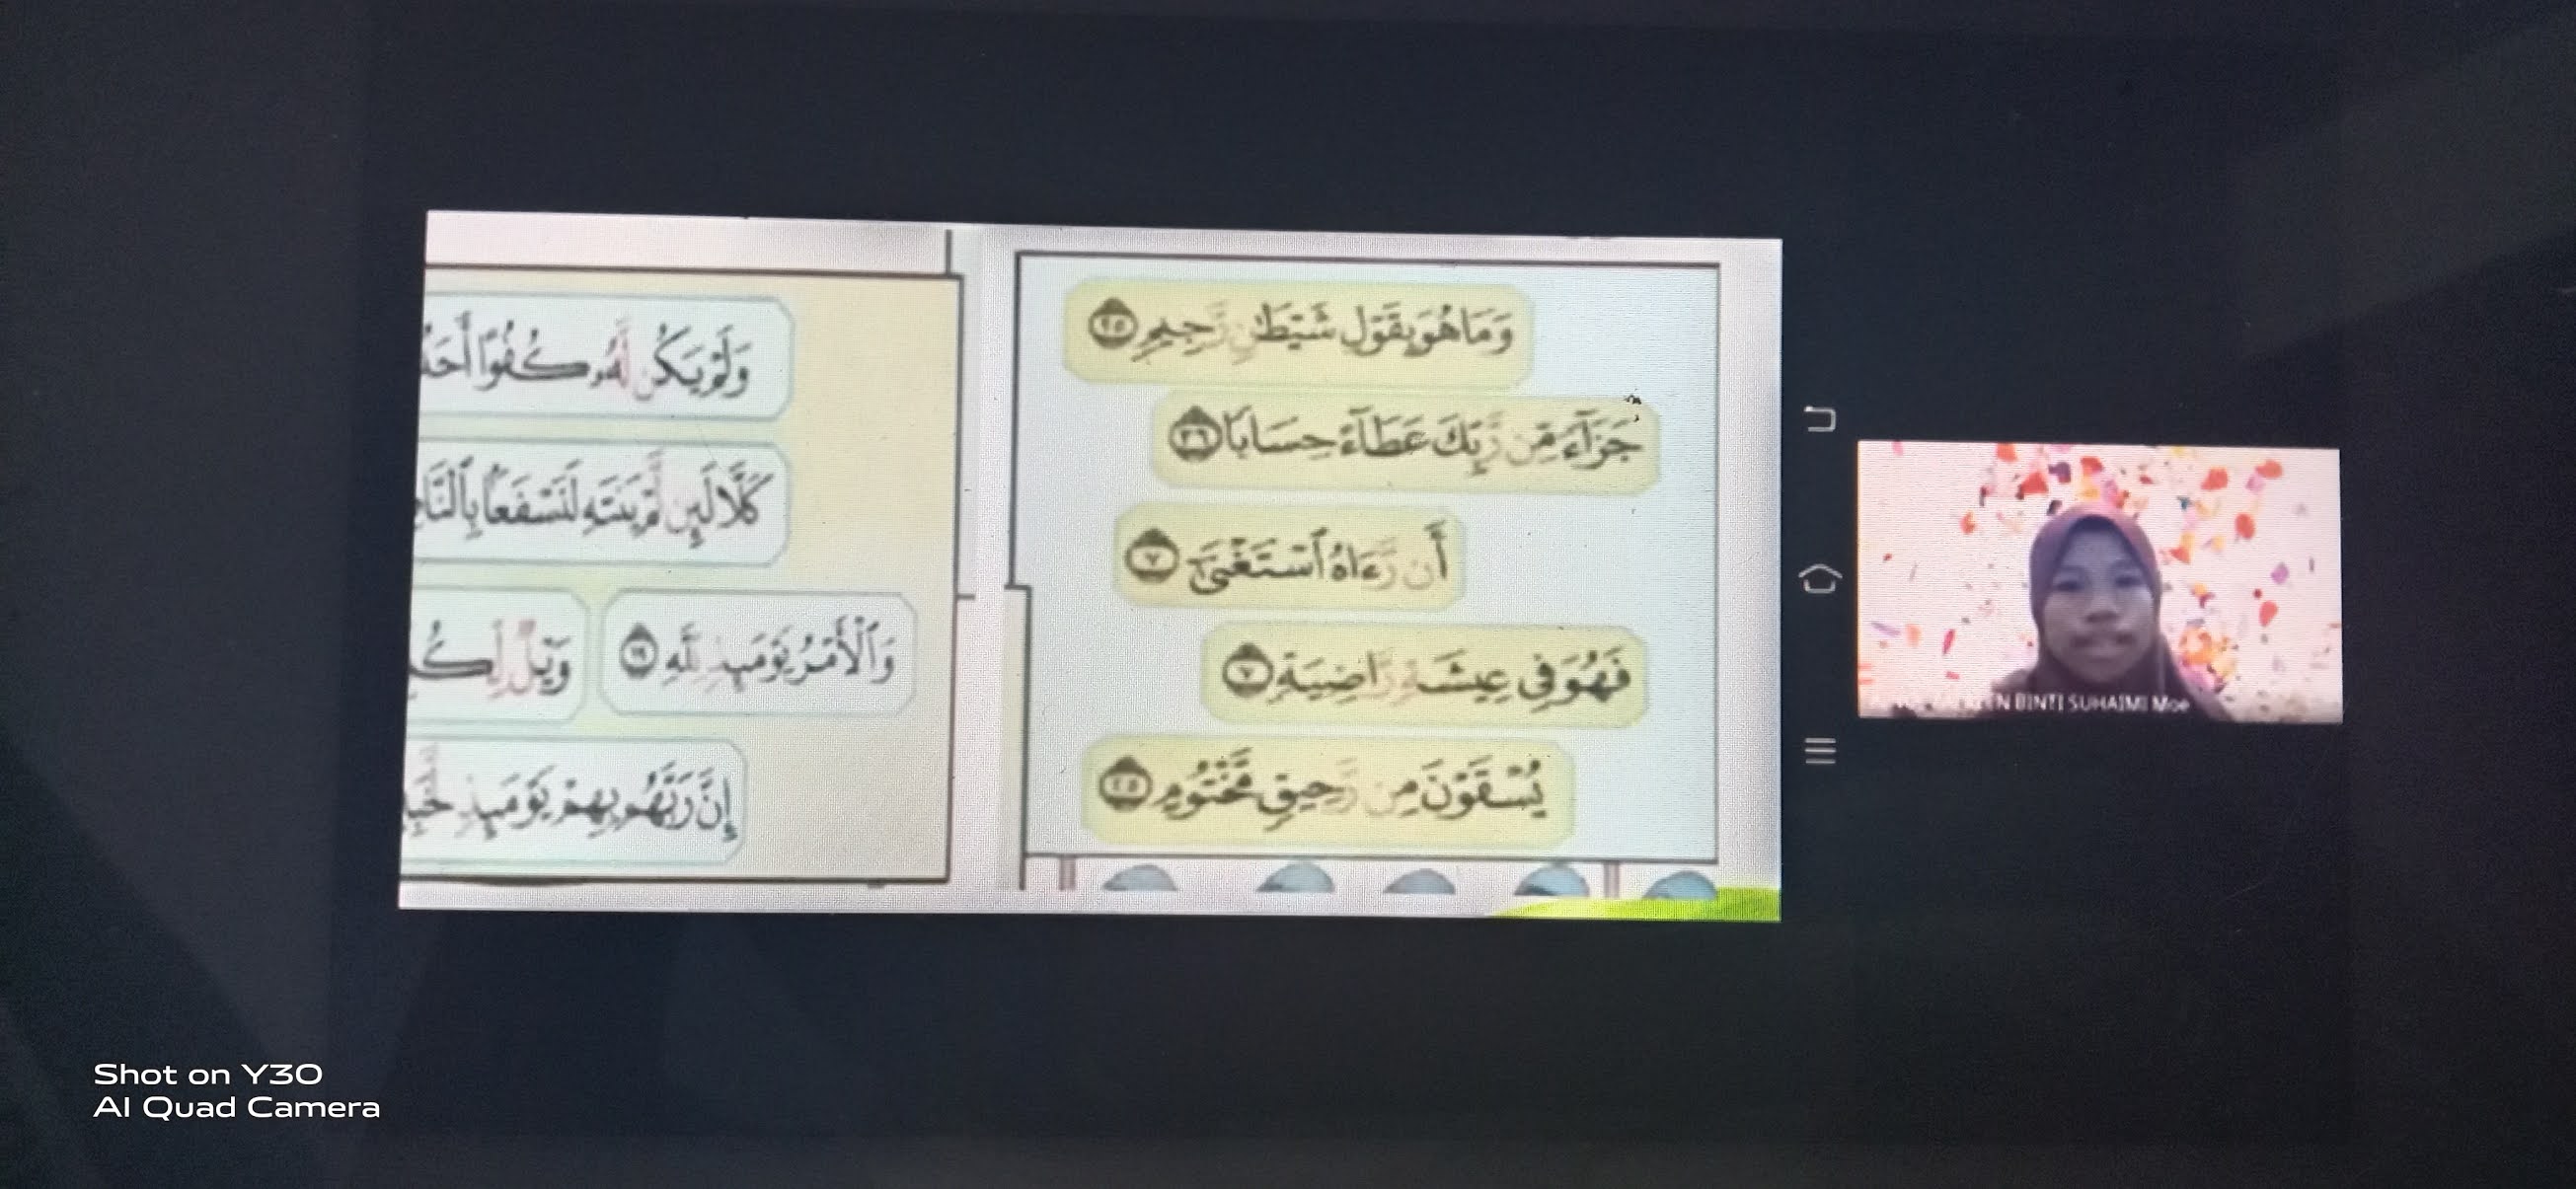 وَمَا هُوَ بِقَوْلِ شَيْطَٰنٍ رَّجِيمٍ ٢٥
جَزَآءً مِّن رَّبِّكَ عَطَآءً حِسَابًا ٣٦
أَن رَّءَاهُ ٱسْتَغْنَىٰٓ ٧
فَهُوَ فِي عِيشَةٍ رَّاضِيَةٍ ٧
يُسْقَوْنَ مِن رَّحِيقٍ مَّخْتُومٍ ٢٥
وَلَمْ يَكُن لَّهُۥ كُفُوًا
كَلَّا لَئِن لَّمْ يَنتَهِ لَنَسْفَعًۢا
وَٱلْأَمْرُ يَوْمَئِذٍ لِّلَّهِ ١٩
وَيْلٌ
إِنَّ رَبَّهُم بِهِمْ يَوْمَئِذٍ
BINTI SUHAIMI Moe
Shot on Y30
AI Quad Camera